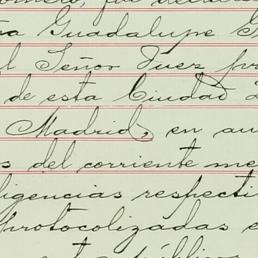 Guadalupe
l Señor Juez pr
de esta Ciudad
Madrid, en au
s del corriente me
ligencias respecti
Protocolizadas e